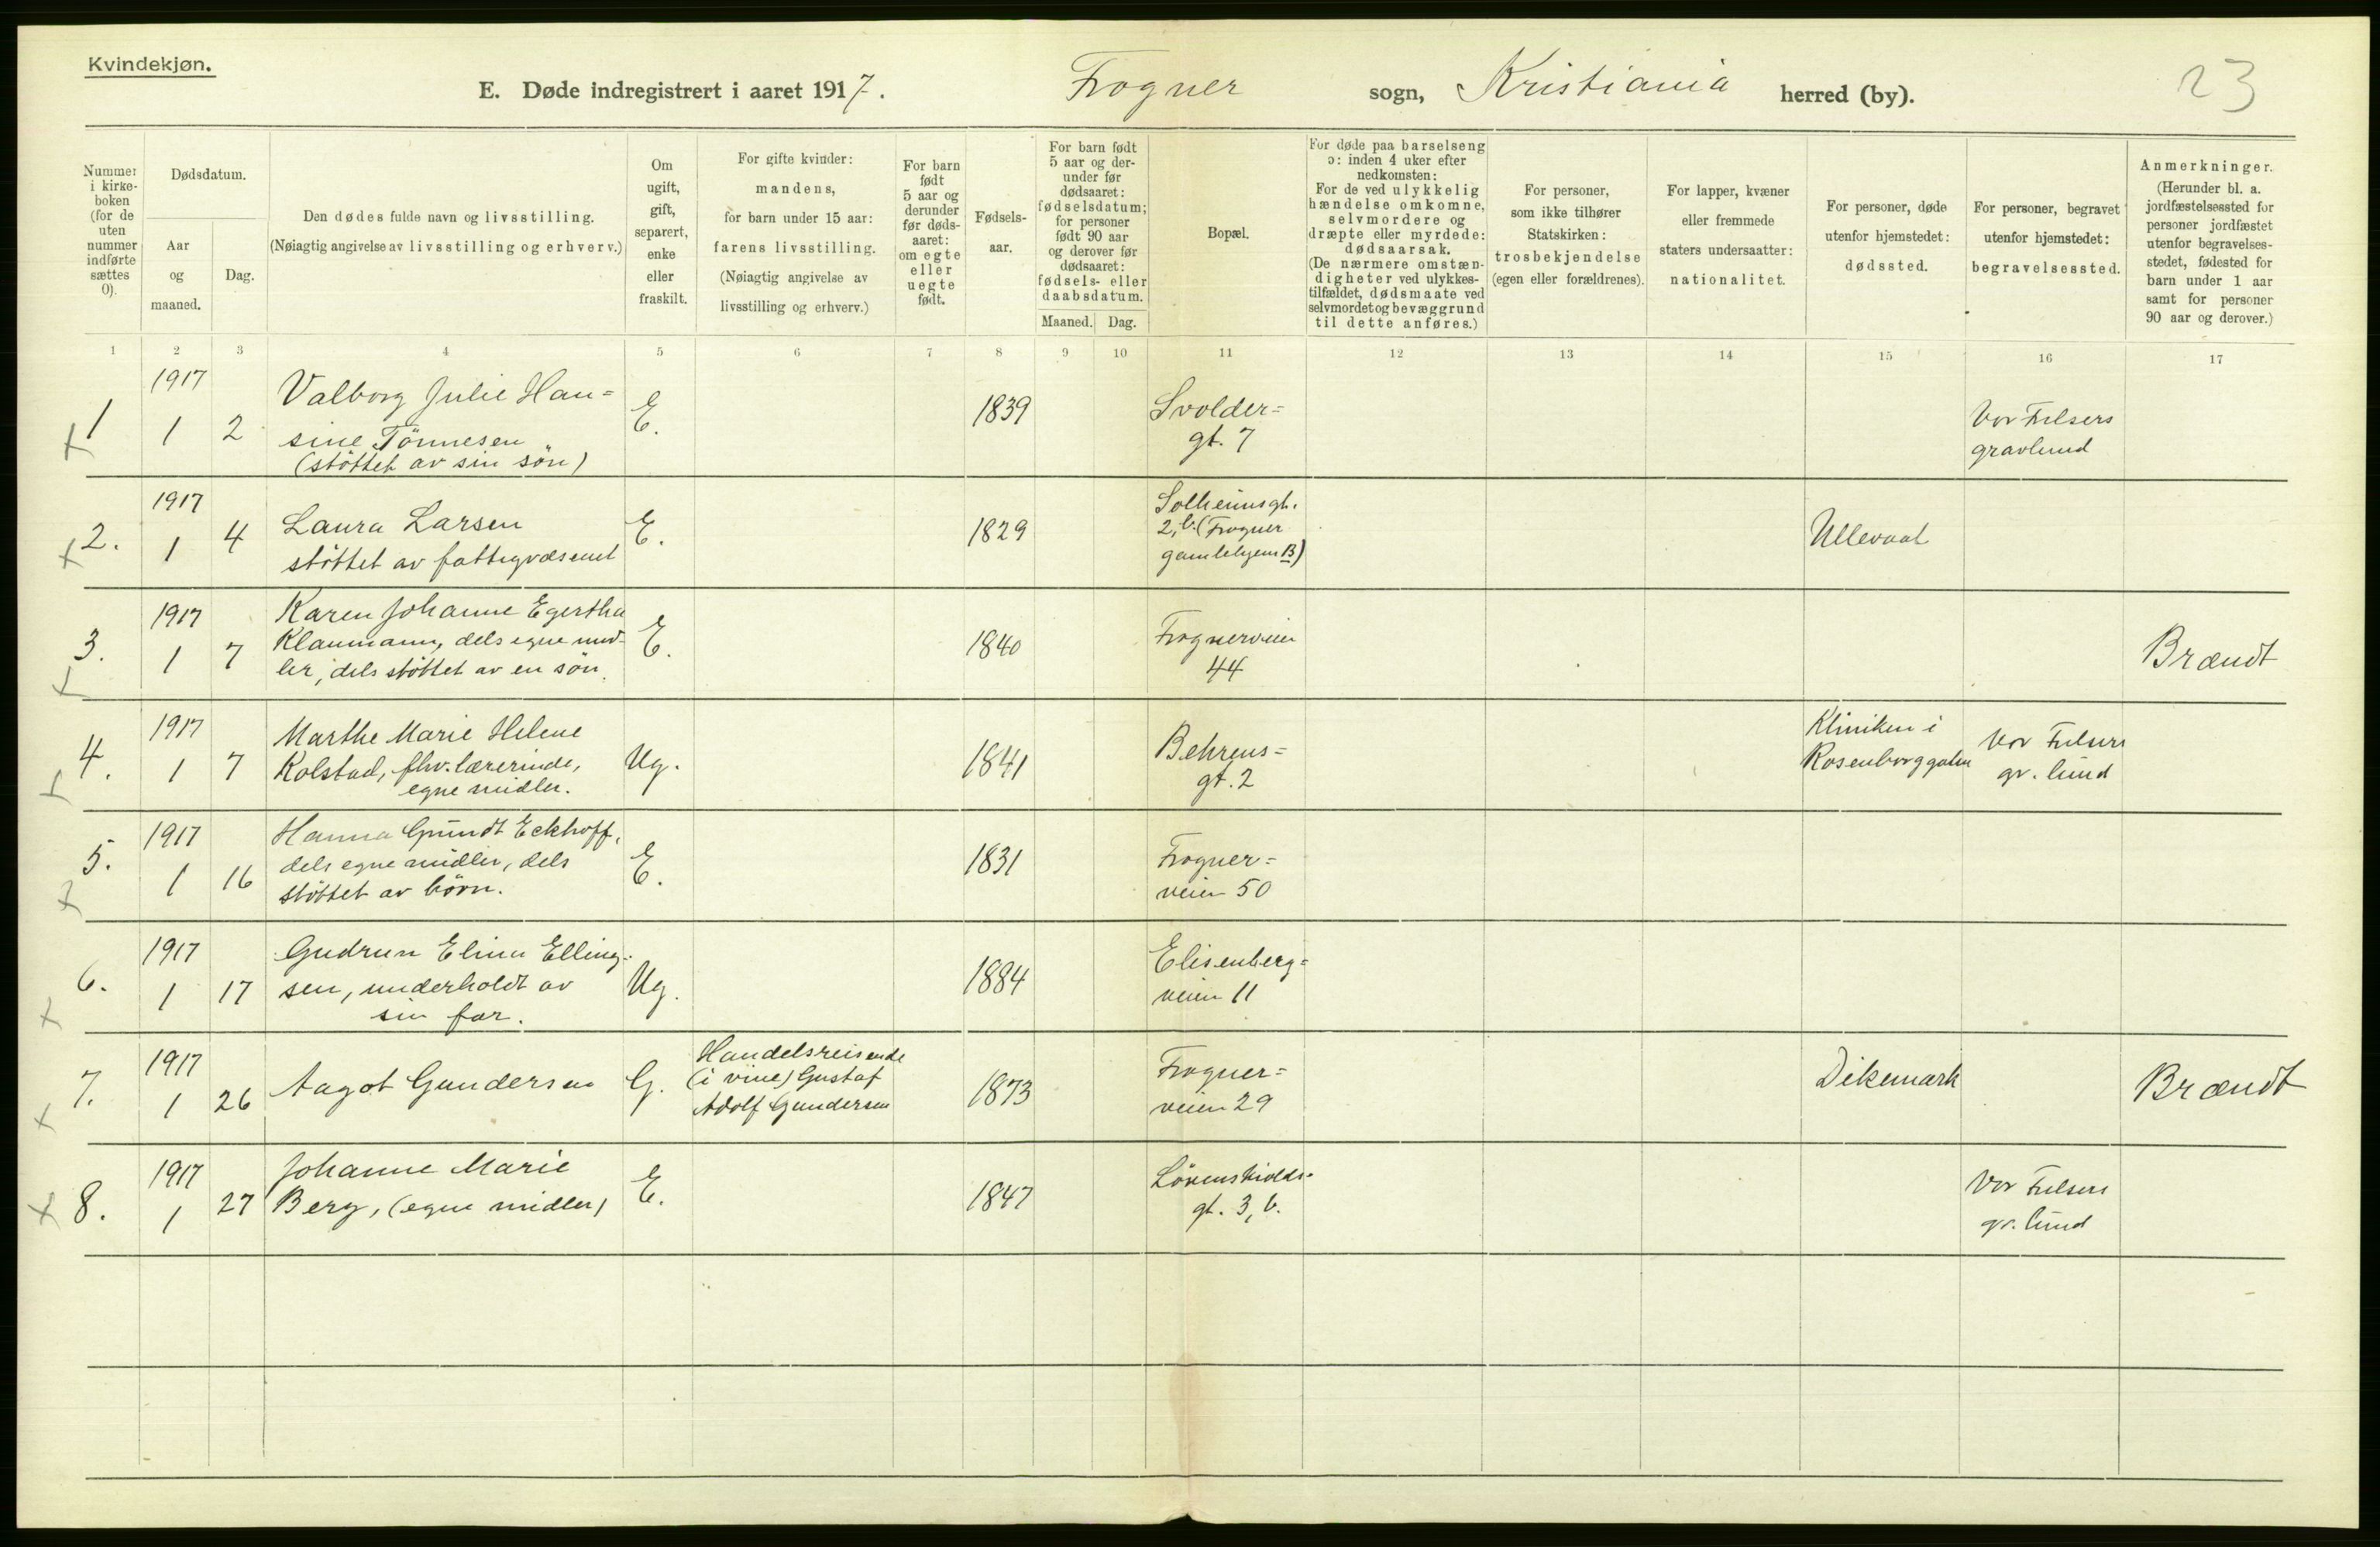 Kvindekjøn.
E. Døde indregistrert i aaret 1917. Frogner sogn, Kristiania herred (by). 23
Nummer i kirkeboken (for de uten nummer indførte sættes 0).
Dødsdatum.
Aar og maaned.
Dag.
Den dødes fulde navn og livsstilling.
(Nøiagtig angivelse av livsstilling og erhverv.)
Om ugift, gift, separert, enke eller fraskilt.
For gifte kvinder:
mandens,
for barn under 15 aar:
farens livsstilling.
(Nøiagtig angivelse av
livsstilling og erhverv.)
For barn født 5 aar og derunder før dødsaaret: om egte eller uegte født.
Fødselsaar.
For barn født 5 aar og derunder før dødsaaret: fødselsdatum; for personer født 90 aar og derover før dødsaaret: fødsels- eller daabsdatum.
Maaned. Dag.
Bopæl.
For døde paa barselseng
ɔ: inden 4 uker efter
nedkomsten:
For de ved ulykkelig
hændelse omkomne,
selvmordere og
dræpte eller myrdede:
dødsaarsak.
(De nærmere omstæn-
digheter ved ulykkes-
tilfældet, dødsmaate ved
selvmordet og bevæggrund
til dette anføres.)
For personer,
som ikke tilhører
Statskirken:
trosbekjendelse
(egen eller forældrenes).
For lapper, kvæner
eller fremmede
staters undersaatter:
nationalitet.
For personer, døde
utenfor hjemstedet:
dødssted.
For personer, begravet
utenfor hjemstedet:
begravelsessted.
Anmerkninger.
(Herunder bl. a.
jordfæstelsessted for
personer jordfæstet
utenfor begravelses-
stedet, fødested for
barn under 1 aar
samt for personer
90 aar og derover.)
1 2 3 4 5 6 7 8 9 10 11 12 13 14 15 16 17
1 1917 1 2
Valborg Julie Han=
sine Tönnesen
(støttet av sin sön)
E. 1839
Svolder=
gt. 7
Vor Frelsers
gravlund
2. 1917 1 4
Laura Larsen
støttet av fattigvæsenet
E. 1829
Solheimsgt.
2, b. (Frogner
gamlehjem B)
Ullevaal
3. 1917 1 7
Karen Johanne Egertha
Klaumann, dels egne mid-
ler, dels støttet av en sön.
E. 1840
Frognerveien
44
Brændt
4. 1917 1 7
Marthe Marie Helene
Kolstad, fhv. lærerinde,
egne midler.
Ug. 1841
Behrens=
gt. 2
Kliniken i
Rosenborggaten
Vor Frelsers
gr. lund
5. 1917 1 16
Hanna Gründt Eckhoff,
dels egne midler, dels
støttet av börn.
E. 1831
Frogner=
veien 50
6. 1917 1 17
Gudrun Elina Elling-
sen, underholdt av
sin far.
Ug. 1884
Elisenberg=
veien 11
7. 1917 1 26
Aagot Gundersen
G.
Handelsreisende
(i vine) Gustaf
Adolf Gundersen
1873
Frogner=
veien 29
Dikemark
Brændt
8. 1917 1 27
Johanne Marie
Berg, (egne midler)
E. 1847
Lövenskiolds-
gt. 3, b.
Vor Frelsers
gr. lund